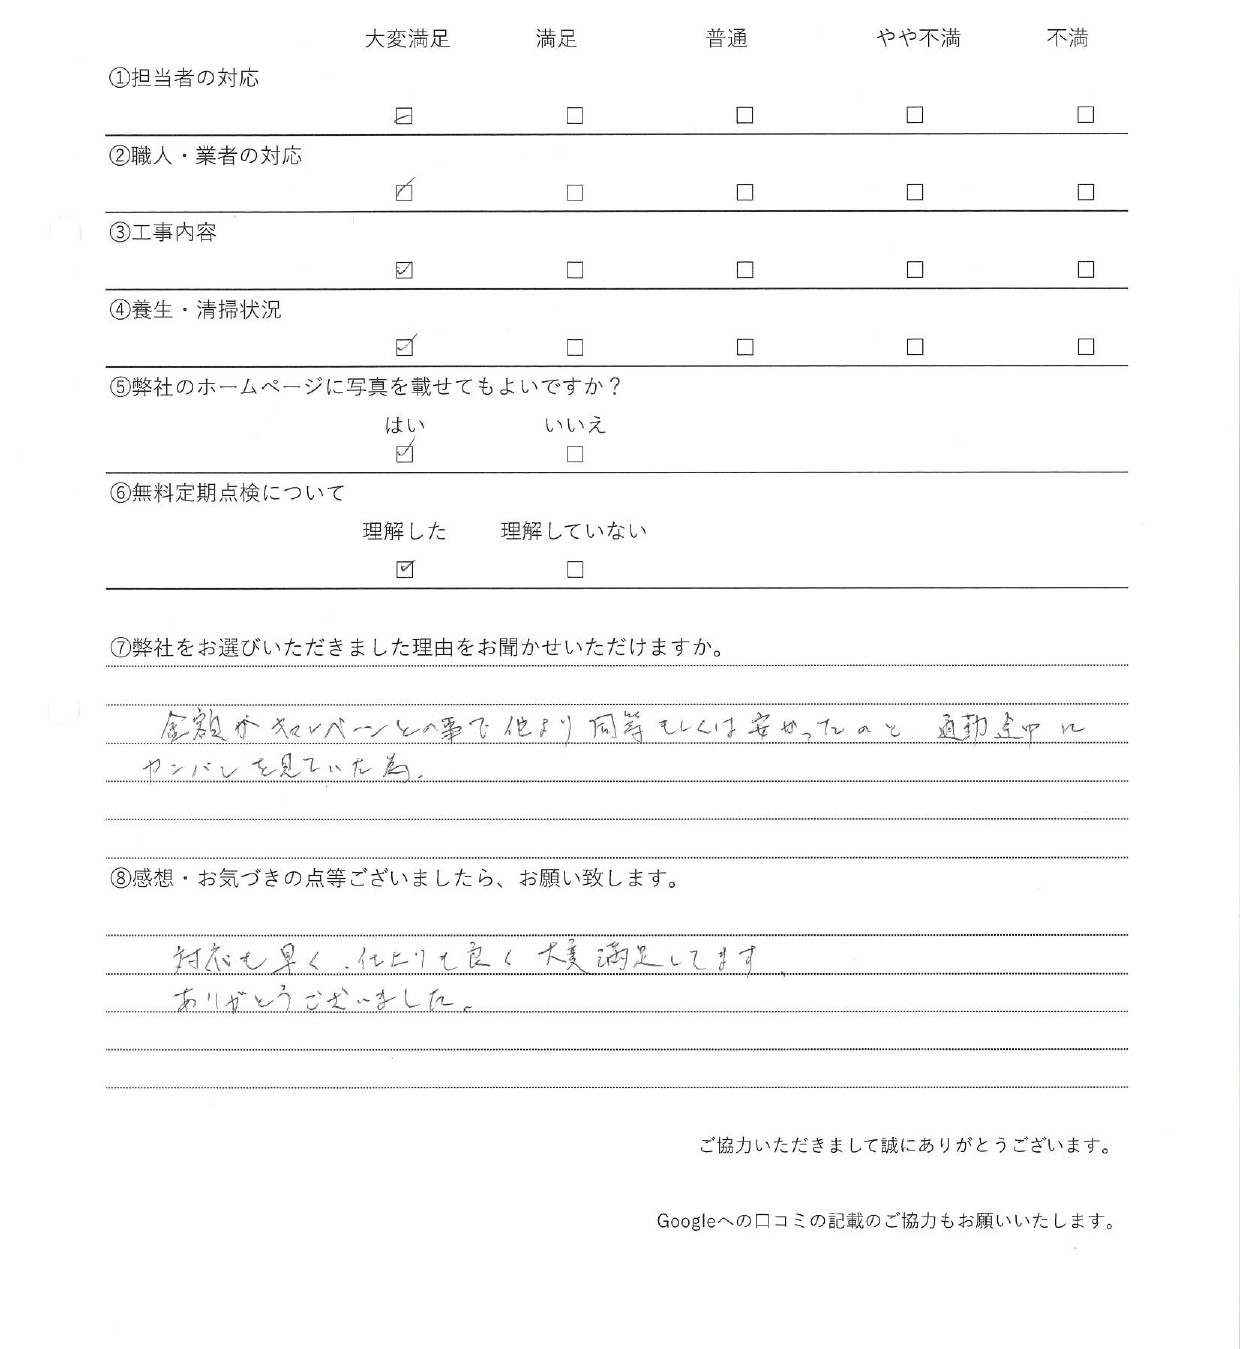 大変満足 満足 普通 やや不満 不満
①担当者の対応
☑ ☐ ☐ ☐ ☐
②職人・業者の対応
☑ ☐ ☐ ☐ ☐
③工事内容
☑ ☐ ☐ ☐ ☐
④養生・清掃状況
☑ ☐ ☐ ☐ ☐
⑤弊社のホームページに写真を載せてもよいですか？
はい いいえ
☑ ☐
⑥無料定期点検について
理解した 理解していない
☑ ☐
⑦弊社をお選びいただきました理由をお聞かせいただけますか。
金額がキャンペーンとの事で他より同等もしくは安かったのと、通勤途中に
カンバンを見ていた為。
⑧感想・お気づきの点等ございましたら、お願い致します。
対応も早く、仕上りも良く大変満足してます。
ありがとうございました。
ご協力いただきまして誠にありがとうございます。
Googleへの口コミの記載のご協力もお願いいたします。